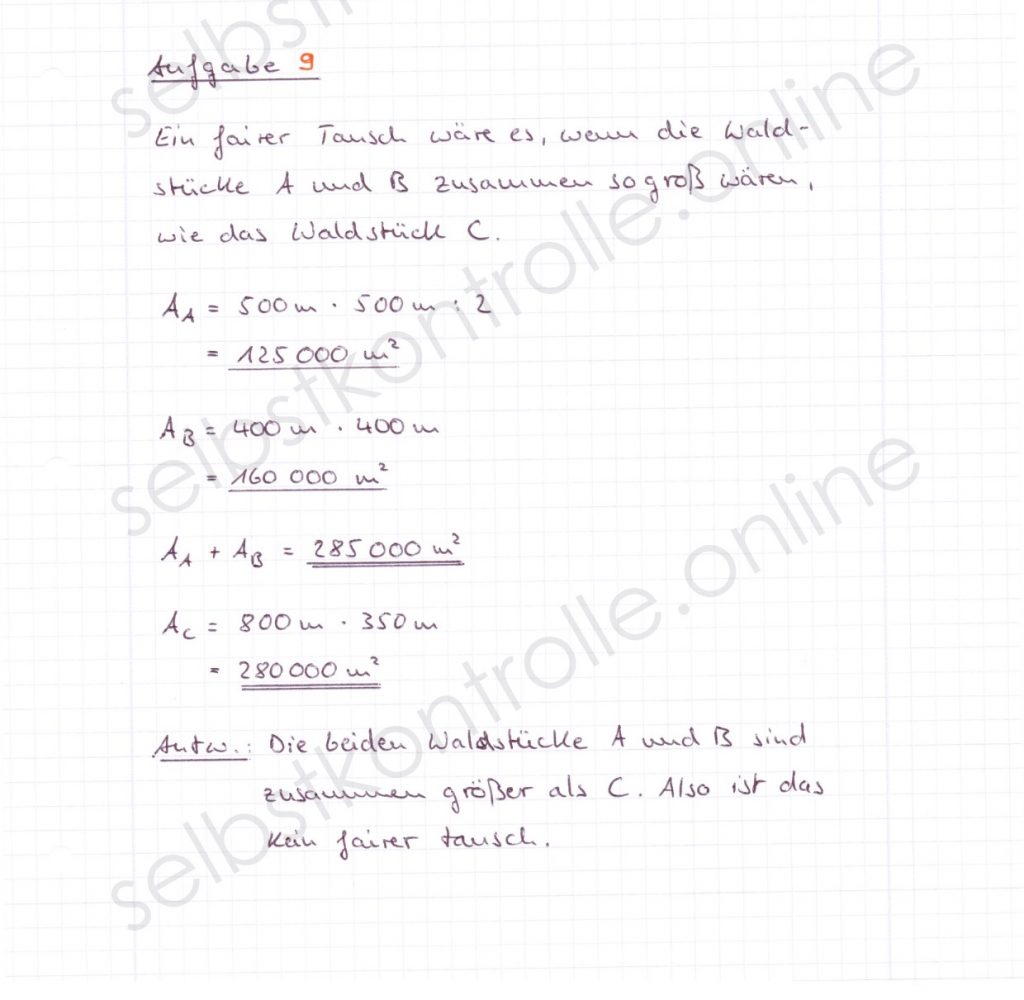 Aufgabe 9
Ein fairer Tausch wäre es, wenn die Wald-
stücke A und B zusammen so groß wären,
wie das Waldstück C.
A_A = 500 m · 500 m : 2
= 125 000 m²
A_B = 400 m · 400 m
= 160 000 m²
A_A + A_B = 285 000 m²
A_C = 800 m · 350 m
= 280 000 m²
Antw.: Die beiden Waldstücke A und B sind
zusammen größer als C. Also ist das
kein fairer tausch.
selbstkontrolle.online
selbstkontrolle.online